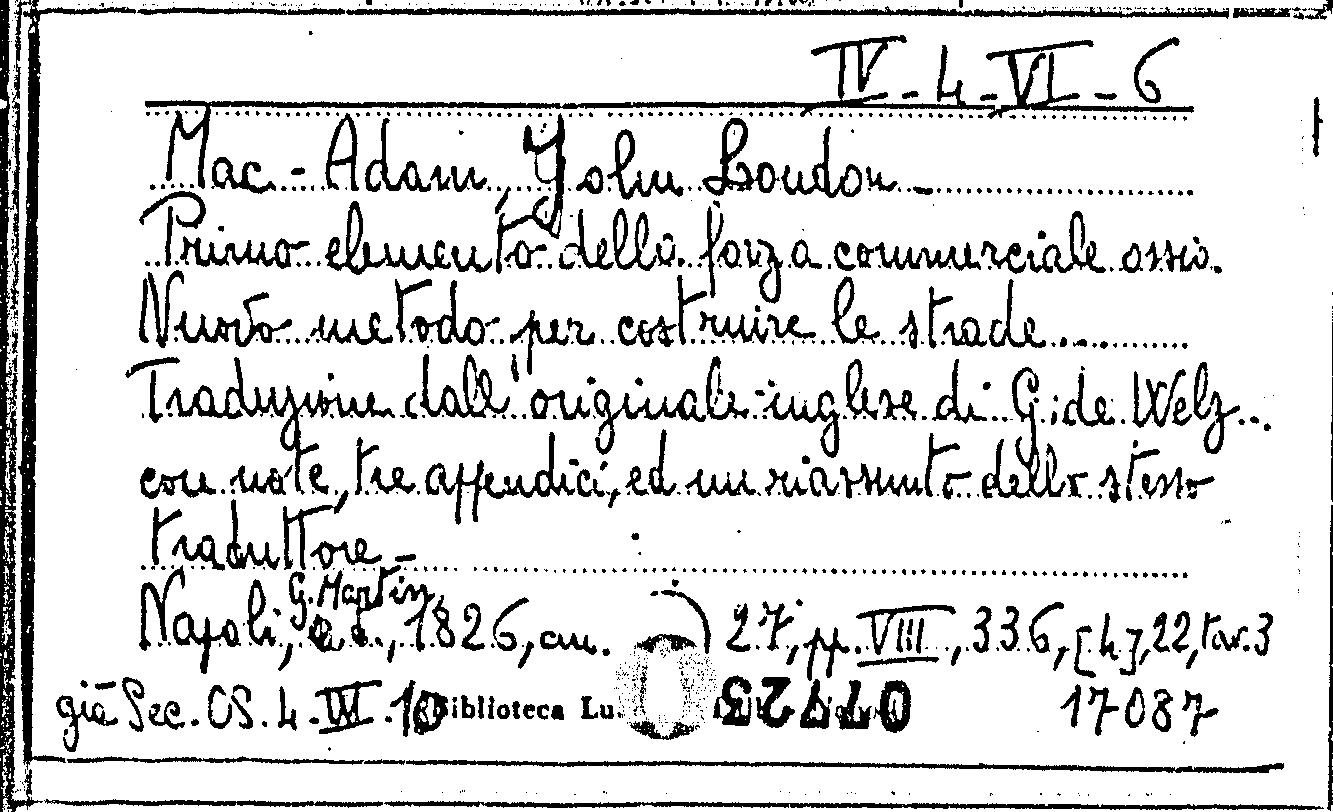 IV-4-VI-6
Mac-Adam, John Loudon-
Primo elemento della forza commerciale ossia
Nuovo metodo per costruire le strade....
Traduzione dall'originale inglese di G. de Welz...
con note, tre appendici, ed un riassunto dello stesso
traduttore-
G. Martin,
Napoli, 1826, cm. 27, pp. VIII, 336, [4], 22, tav. 3
già Sec. OS. 4. Biblioteca Lu. 07723 17087